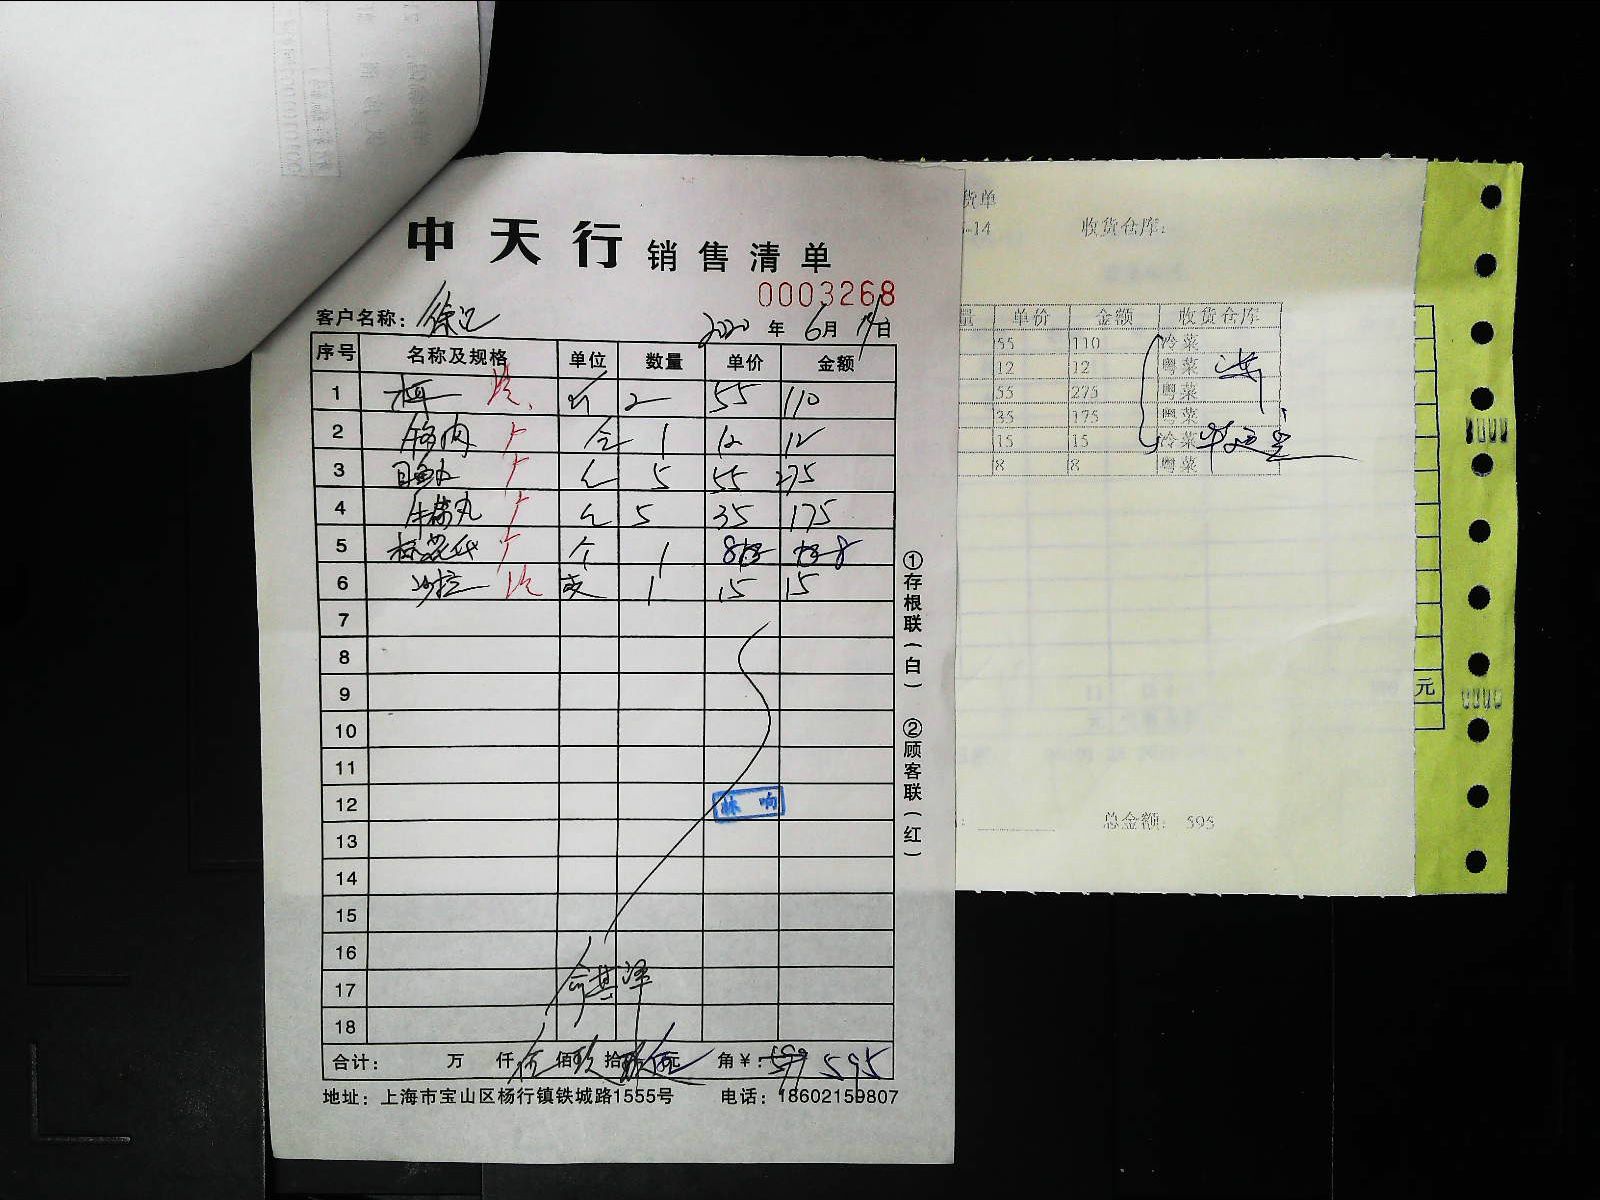 中天行 销售清单
0003268
客户名称：徐汇 2020年6月14日
序号 名称及规格 单位 数量 单价 金额
1 2 55 110
2 1 12 12
3 目鱼丸 5 55 275
4 5 35 175
5 个 1 8 8
6 沙拉 1 15 15
7
8
9
10
11
12 林响
13
14
15
16
17
18
合计： 万 仟 伍佰玖拾伍元 角￥：595
地址：上海市宝山区杨行镇铁城路1555号 电话：18602159807
①存根联（白）
②顾客联（红）
货单
-14 收货仓库：
量 单价 金额 收货仓库
55 110 冷菜
12 12 粤菜
55 275 粤菜
35 175 粤菜
15 15 冷菜
8 8 粤菜
总金额： 595
元